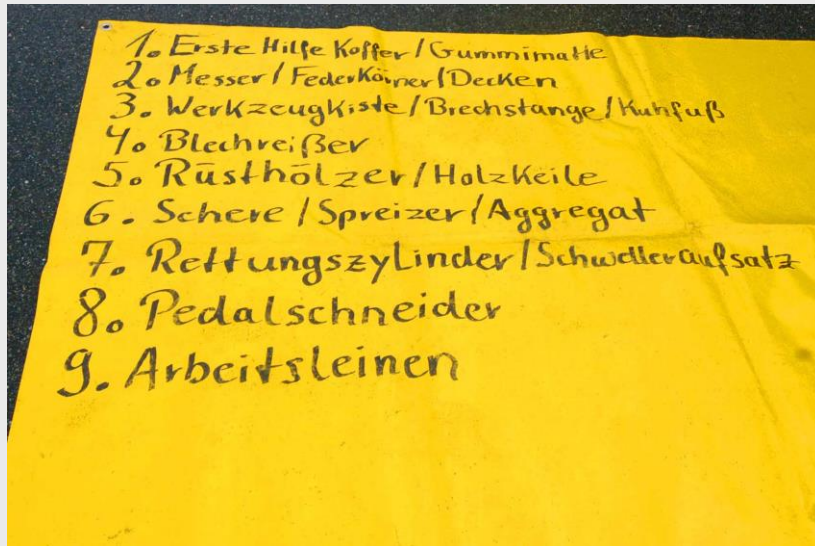 1. Erste Hilfe Koffer/Gummimatte
2. Messer/Federkörner/Decken
3. Werkzeugkiste/Brechstange/Kuhfuß
4. Blechreißer
5. Rüsthölzer/Holzkeile
6. Schere/Spreizer/Aggregat
7. Rettungszylinder/Schwelleraufsatz
8. Pedalschneider
9. Arbeitsleinen